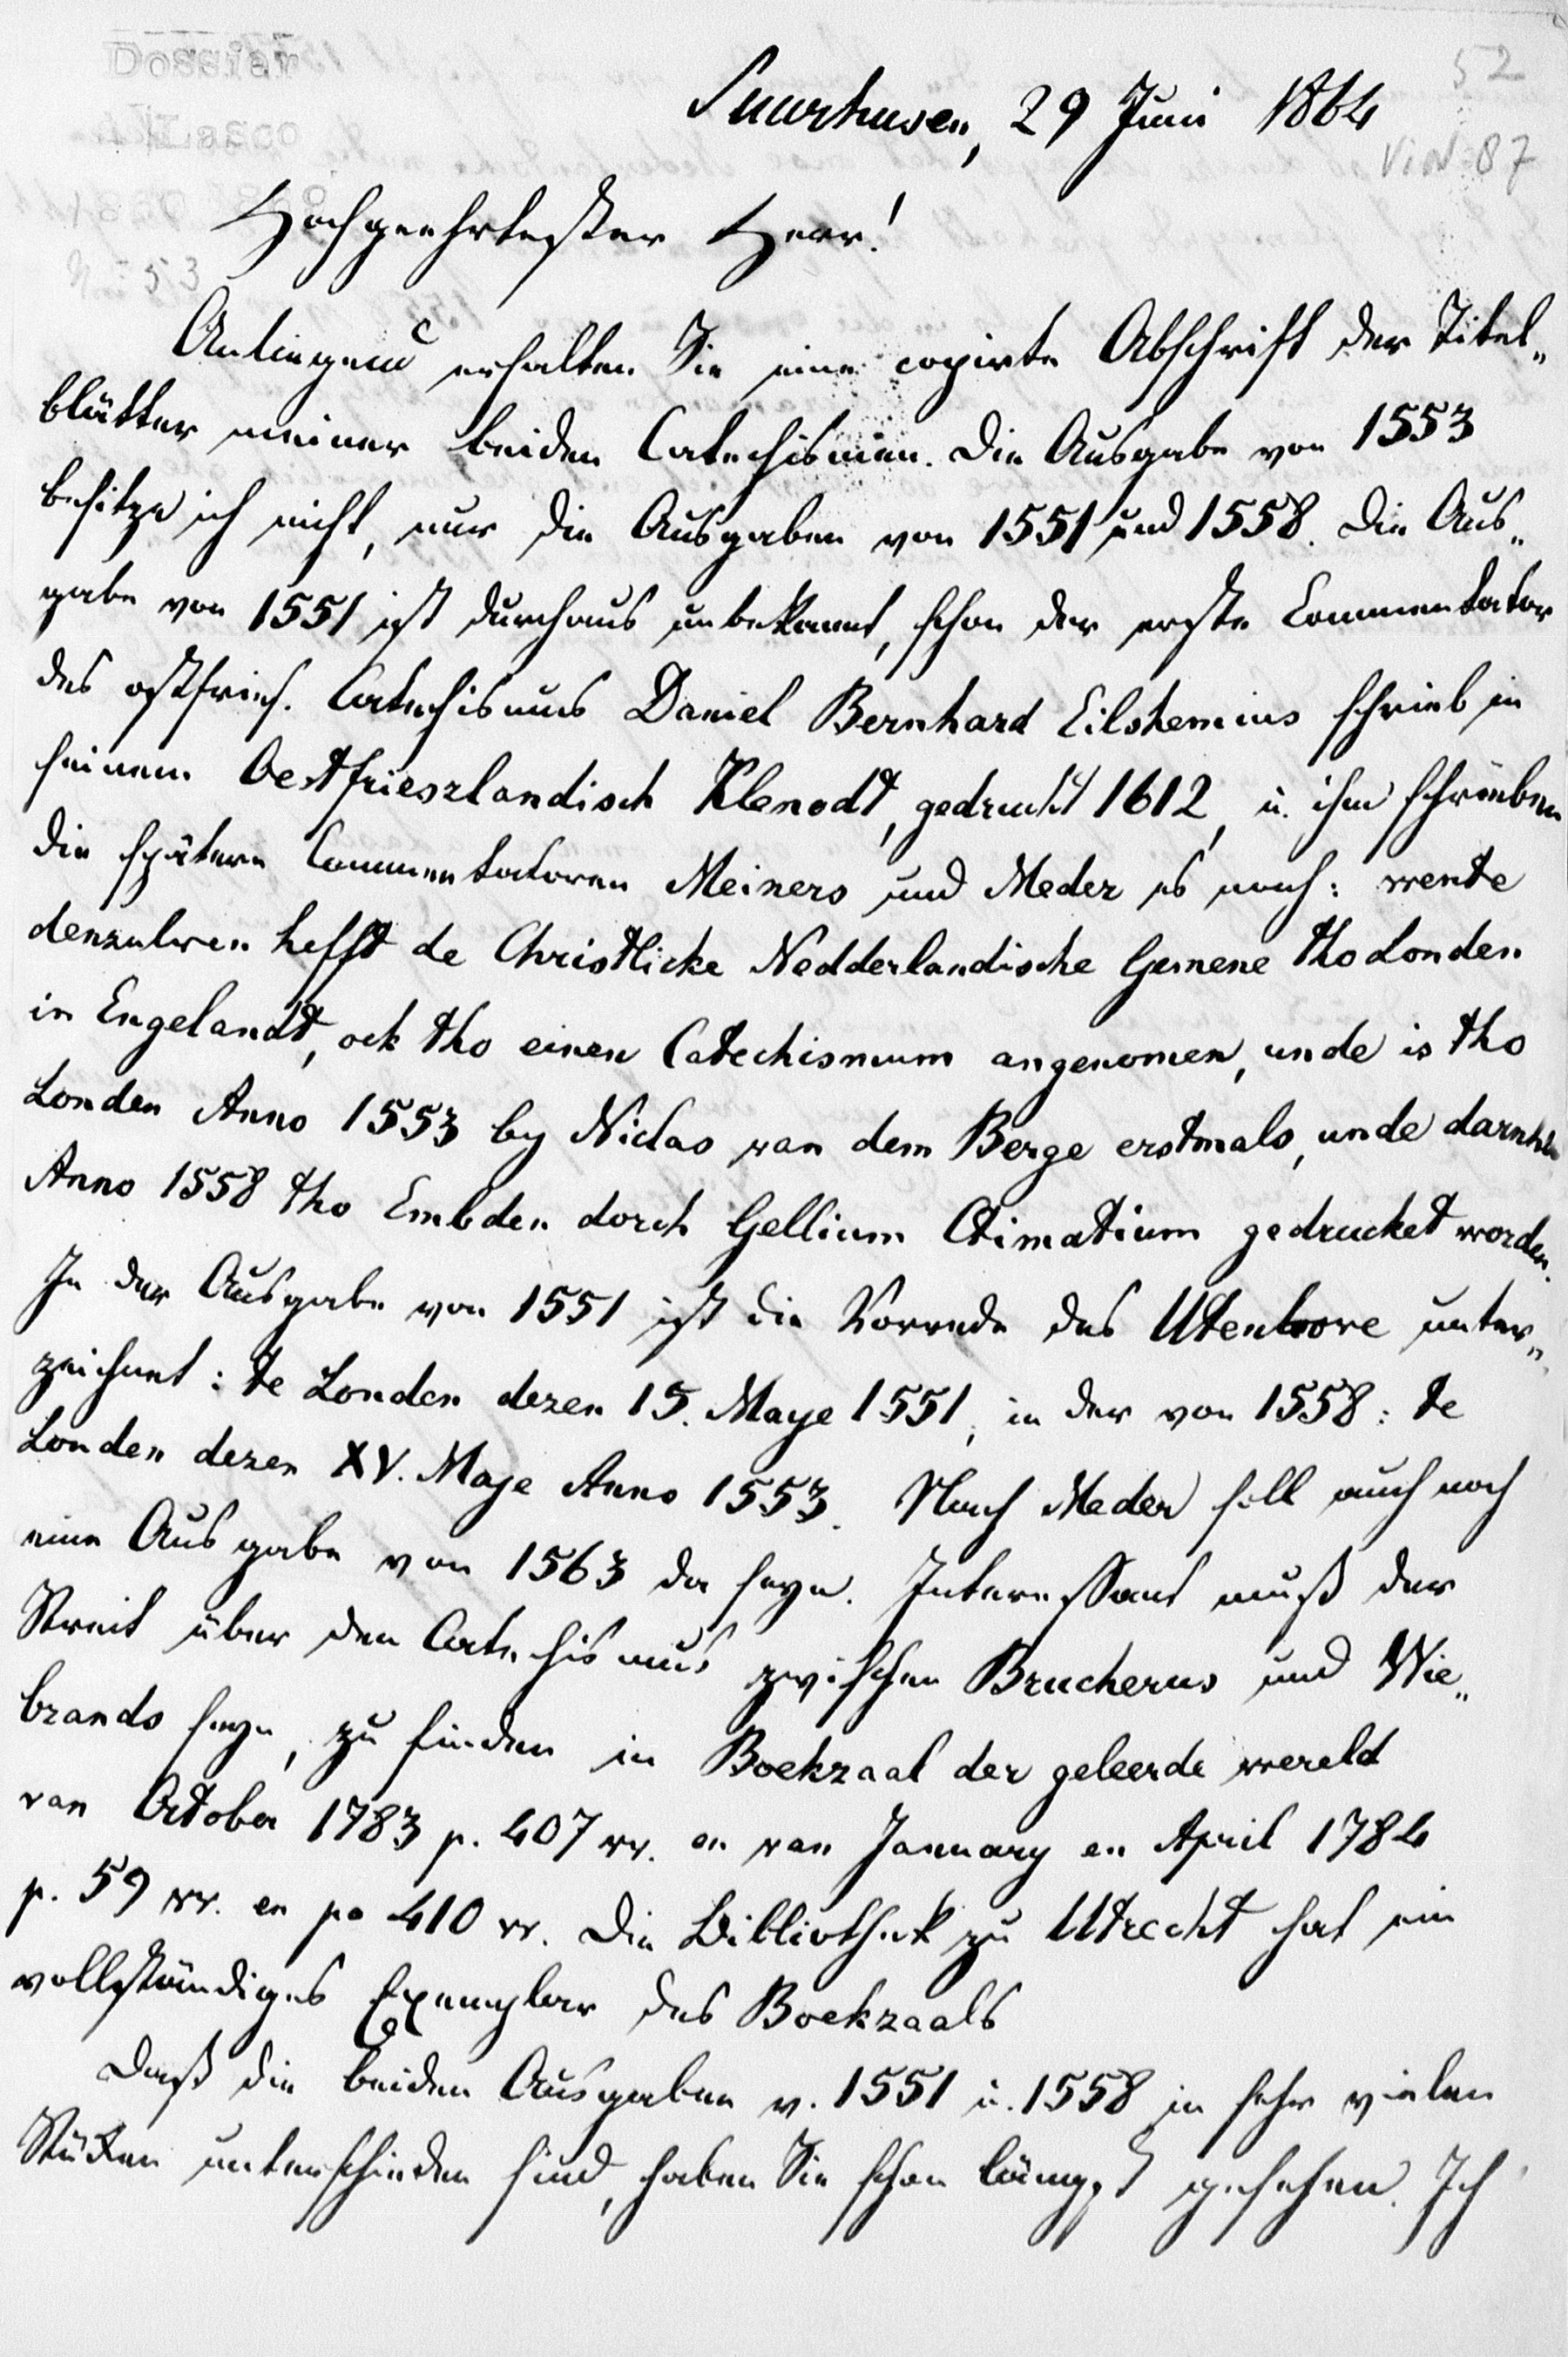 Dossier
52
Suurhusen, 29 Juni 1864
VIN 87
Hochgeehrtester Herr!
No 53
Anliegend erhalten Sie eine copirte Abschrift der Titel„
blätter meiner beiden Catechismen. Die Ausgabe von 1553
besitze ich nicht, nur die Ausgaben von 1551 und 1558. Die Aus„
gabe von 1551 ist durchaus unbekannt, schon der erste Commentator
des ostfries. Catechismus Daniel Bernhard Eilshemius schrieb in
seinem Oestfrieszlandisch Klenodt, gedruckt 1612, u. ihm schrieben
die spätern Commentatoren Meiners und Meder es nach: wente
denzulven hefft de Christlicke Nedderlandische Gemene tho Londen
in Engelandt, ock tho einen Catechismum angenomen, unde is tho
Londen Anno 1553 by Niclas van dem Berge erstmals, unde darnha
Anno 1558 tho Embden dorch Gellium Ctimatium gedrucket worden.
In der Ausgabe von 1551 ist die Vorrede des Utenhove unter„
zeichnet: te Londen dezen 15. Maye 1551, in der von 1558: te
Londen dezen XV. Maye Anno 1553. Nach Meder soll auch noch
eine Ausgabe von 1563 da seyn. Interessant muß der
Streit über den Catechismus zwischen Brucherus und Wie„
brands seyn, zu finden in Boekzaal der geleerde wereld
van October 1783 p. 407 vv. en van January en April 1784
p. 59 vv. en pa 410 vv. Die Bibliothek zu Utrecht hat ein
vollständiges Exemplar des Boekzaals
Daß die beiden Ausgaben v. 1551 u. 1558 in sehr vielen
Stücken unterschieden sind, haben Sie schon längst gesehen. Ich